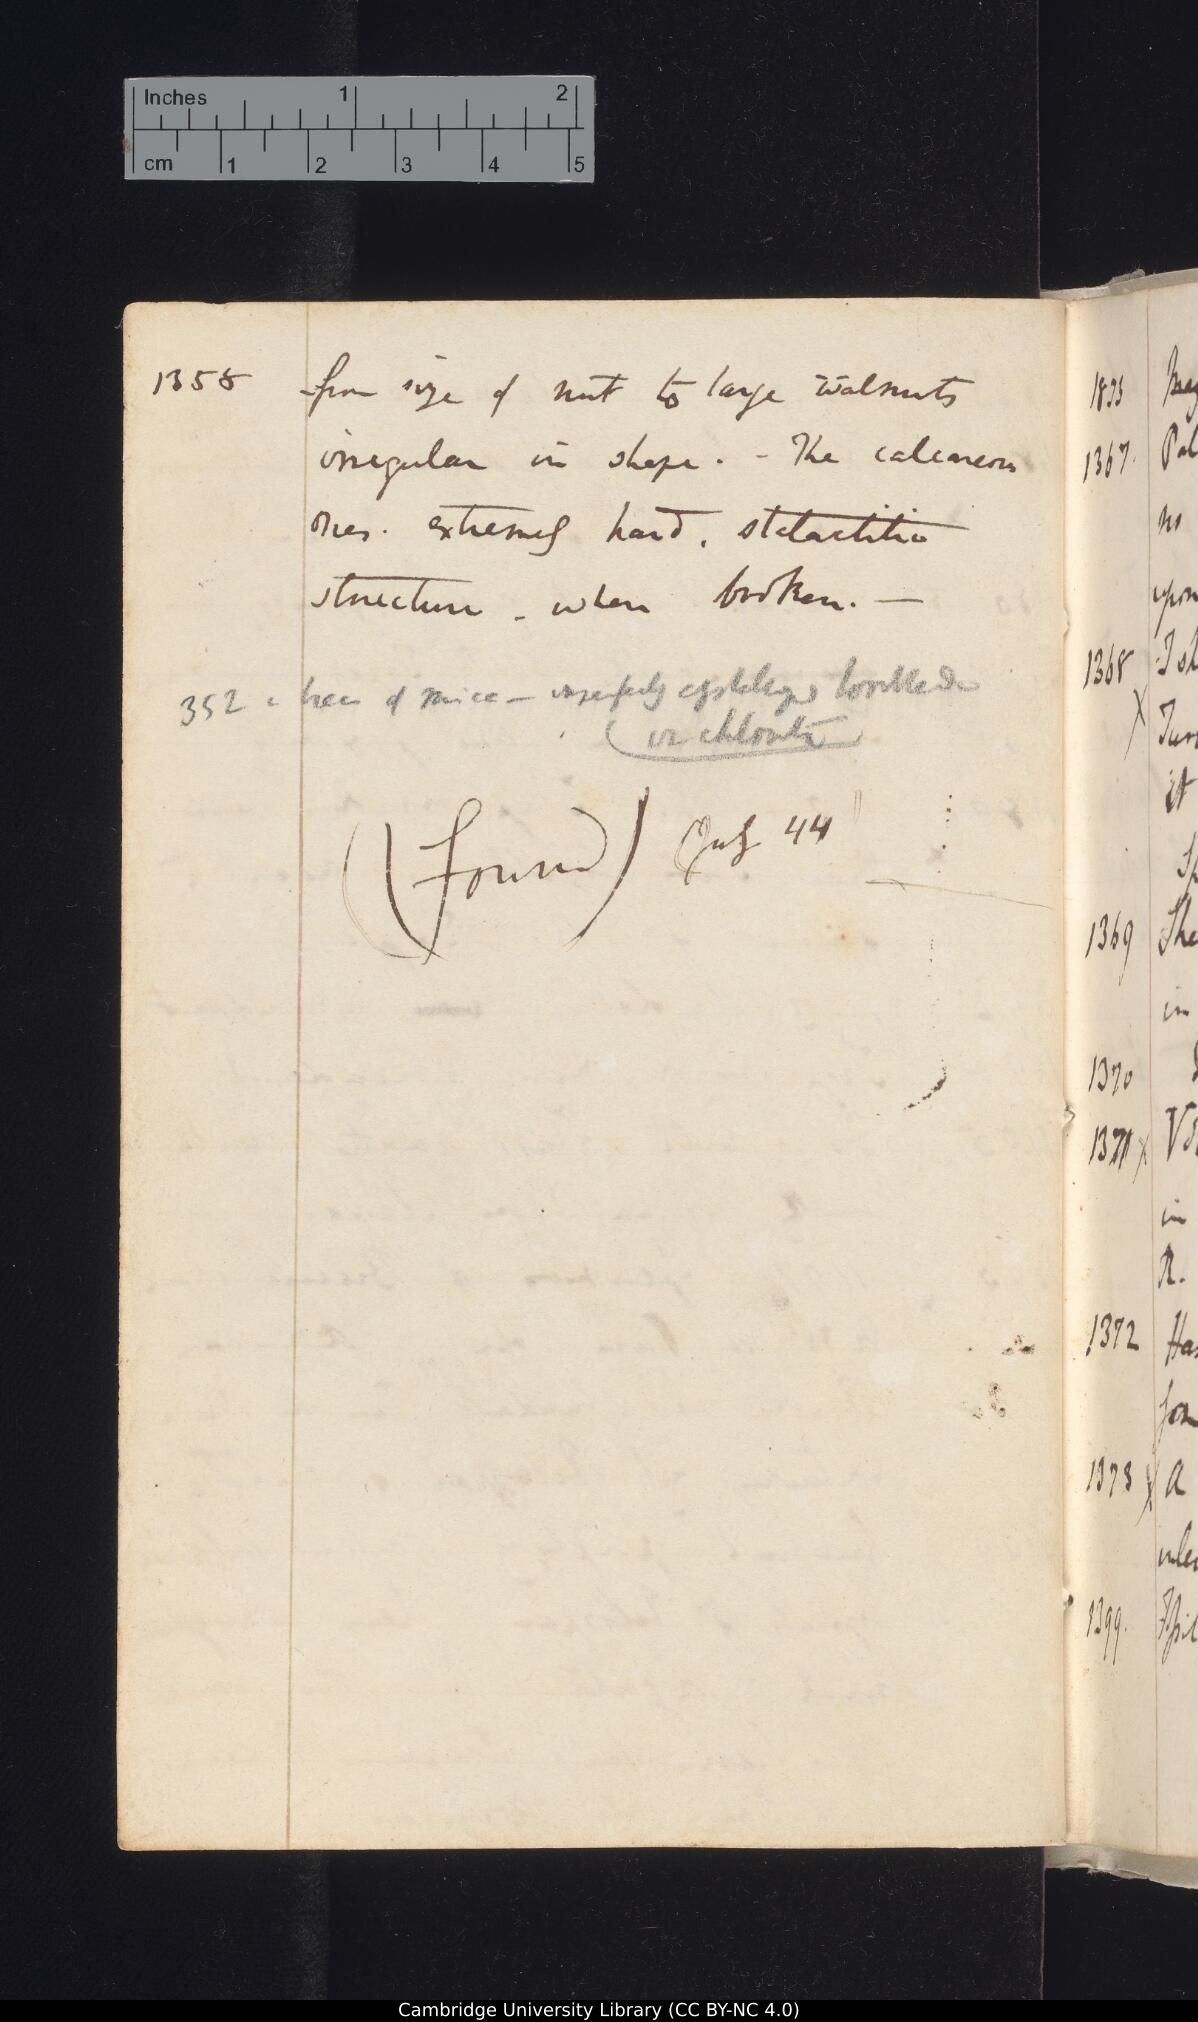 Inches 1 2
cm 1 2 3 4 5
1358 from size of nut to large walnuts
irregular in shape. - The calcareous
ones. extremely hard, stalactitic
structure - when broken. —
352 a trace of mica — imperfectly hornblende
or chlorite
(Found) July 44
1833
1367.
no
upon
1368
X
it
1369 She
in
1370
1371 X
in
R.
1372
1373 X A
1399.
Cambridge University Library (CC BY-NC 4.0)